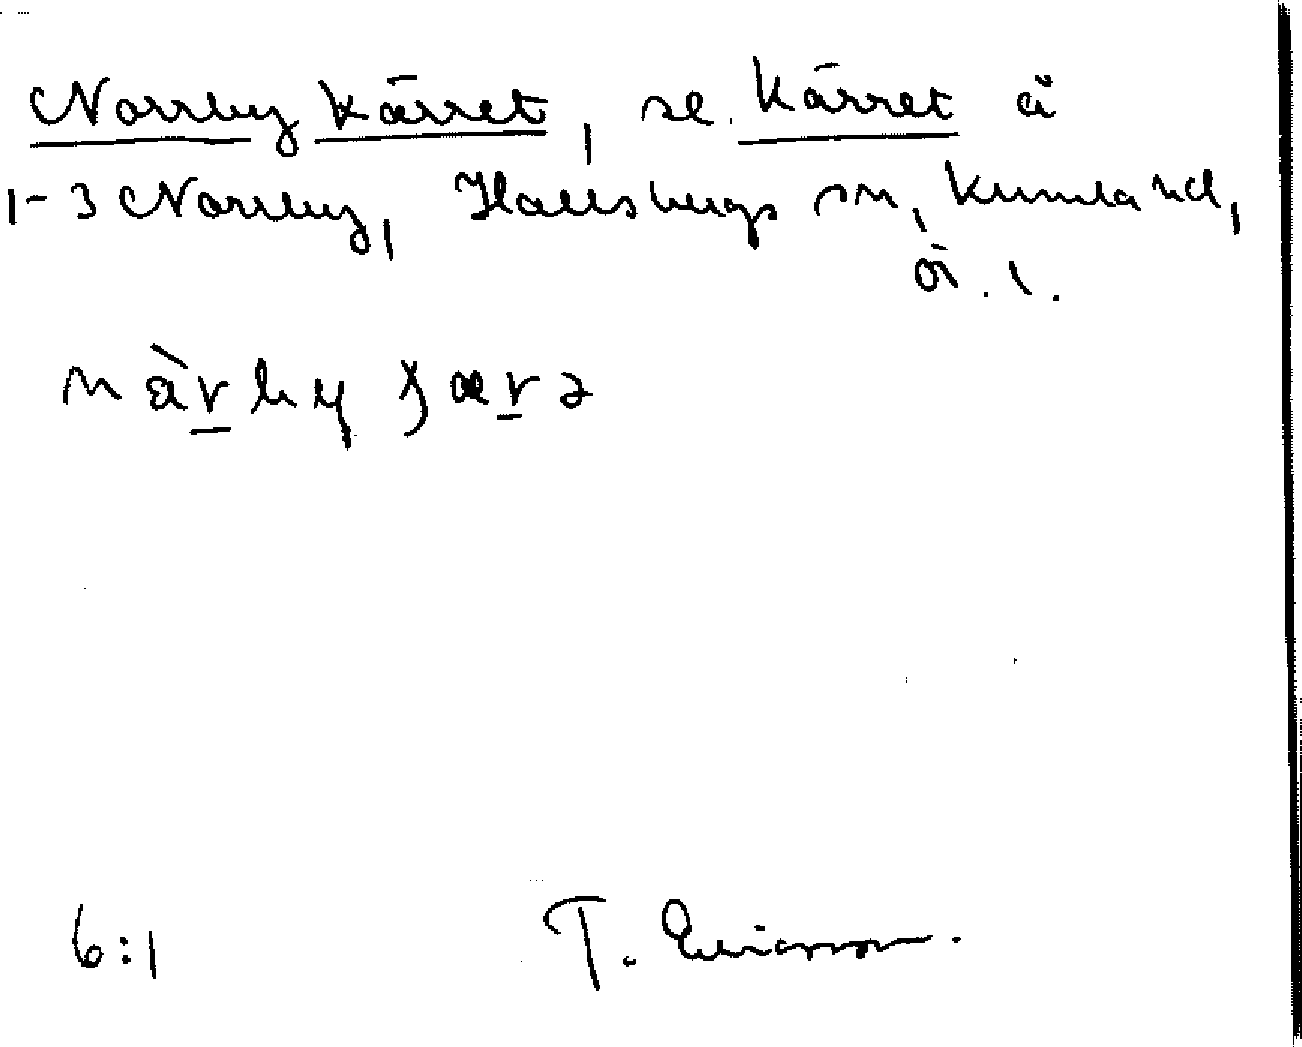 Norrby Kärret, se Kärret å
1-3 Norrby, Hallsbergs sn, Kumla hd,
Ö. l.
nàrby ɟærə
6:1 T. Ericsson.